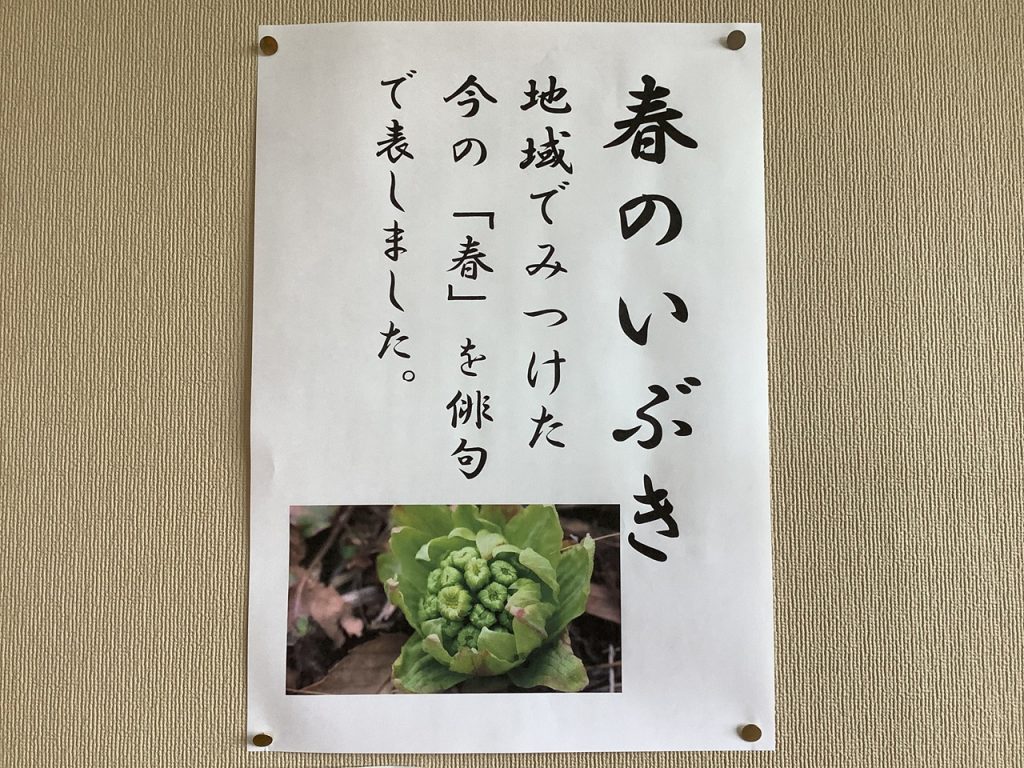 春のいぶき
地域でみつけた
今の「春」を俳句
で表しました。